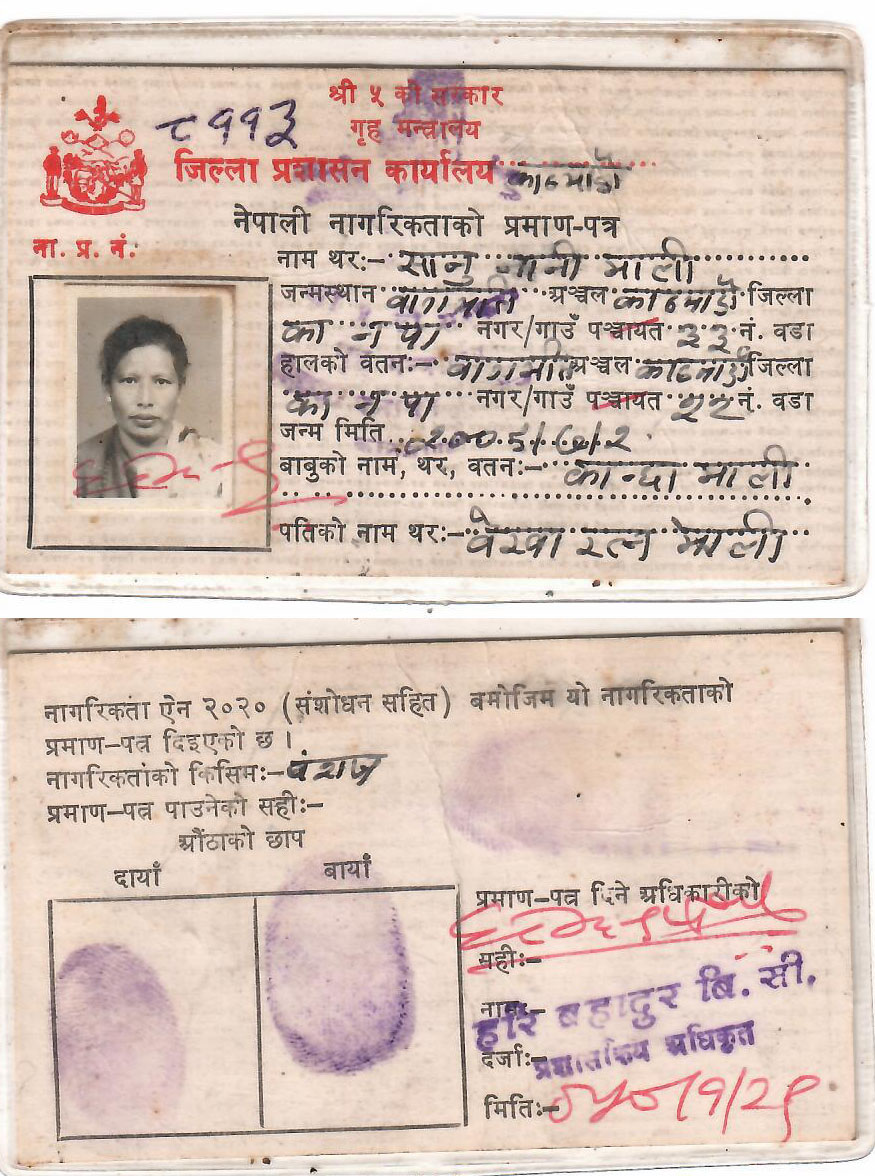 श्री ५ को सरकार
८११३
गृह मन्त्रालय
जिल्ला प्रशासन कार्यालय काठमाडौं
नेपाली नागरिकताको प्रमाण-पत्र
ना. प्र. नं.
नाम थरः- सानु नानी माली
जन्मस्थान वागमती अञ्चल काठमाडौं जिल्ला
का न पा नगर/गाउँ पञ्चायत २२ नं. वडा
हालको वतनः- वागमती अञ्चल काठमाडौं जिल्ला
का न पा नगर/गाउँ पञ्चायत २२ नं. वडा
जन्म मिति
बाबुको नाम, थर, वतनः- कान्छा माली
पतिको नाम थरः- रत्न माली
नागरिकता ऐन २०२० (संशोधन सहित) बमोजिम यो नागरिकताको
प्रमाण-पत्र दिइएको छ ।
नागरिकतांको किसिमः- वंशज
प्रमाण-पत्र पाउनेको सहीः-
औंठाको छाप
दायाँ बायाँ
प्रमाण-पत्र दिने अधिकारीको
सहीः-
नामः-
हरि बहादुर बि. सी.
दर्जाः- प्रशासकिय अधिकृत
मितिः-